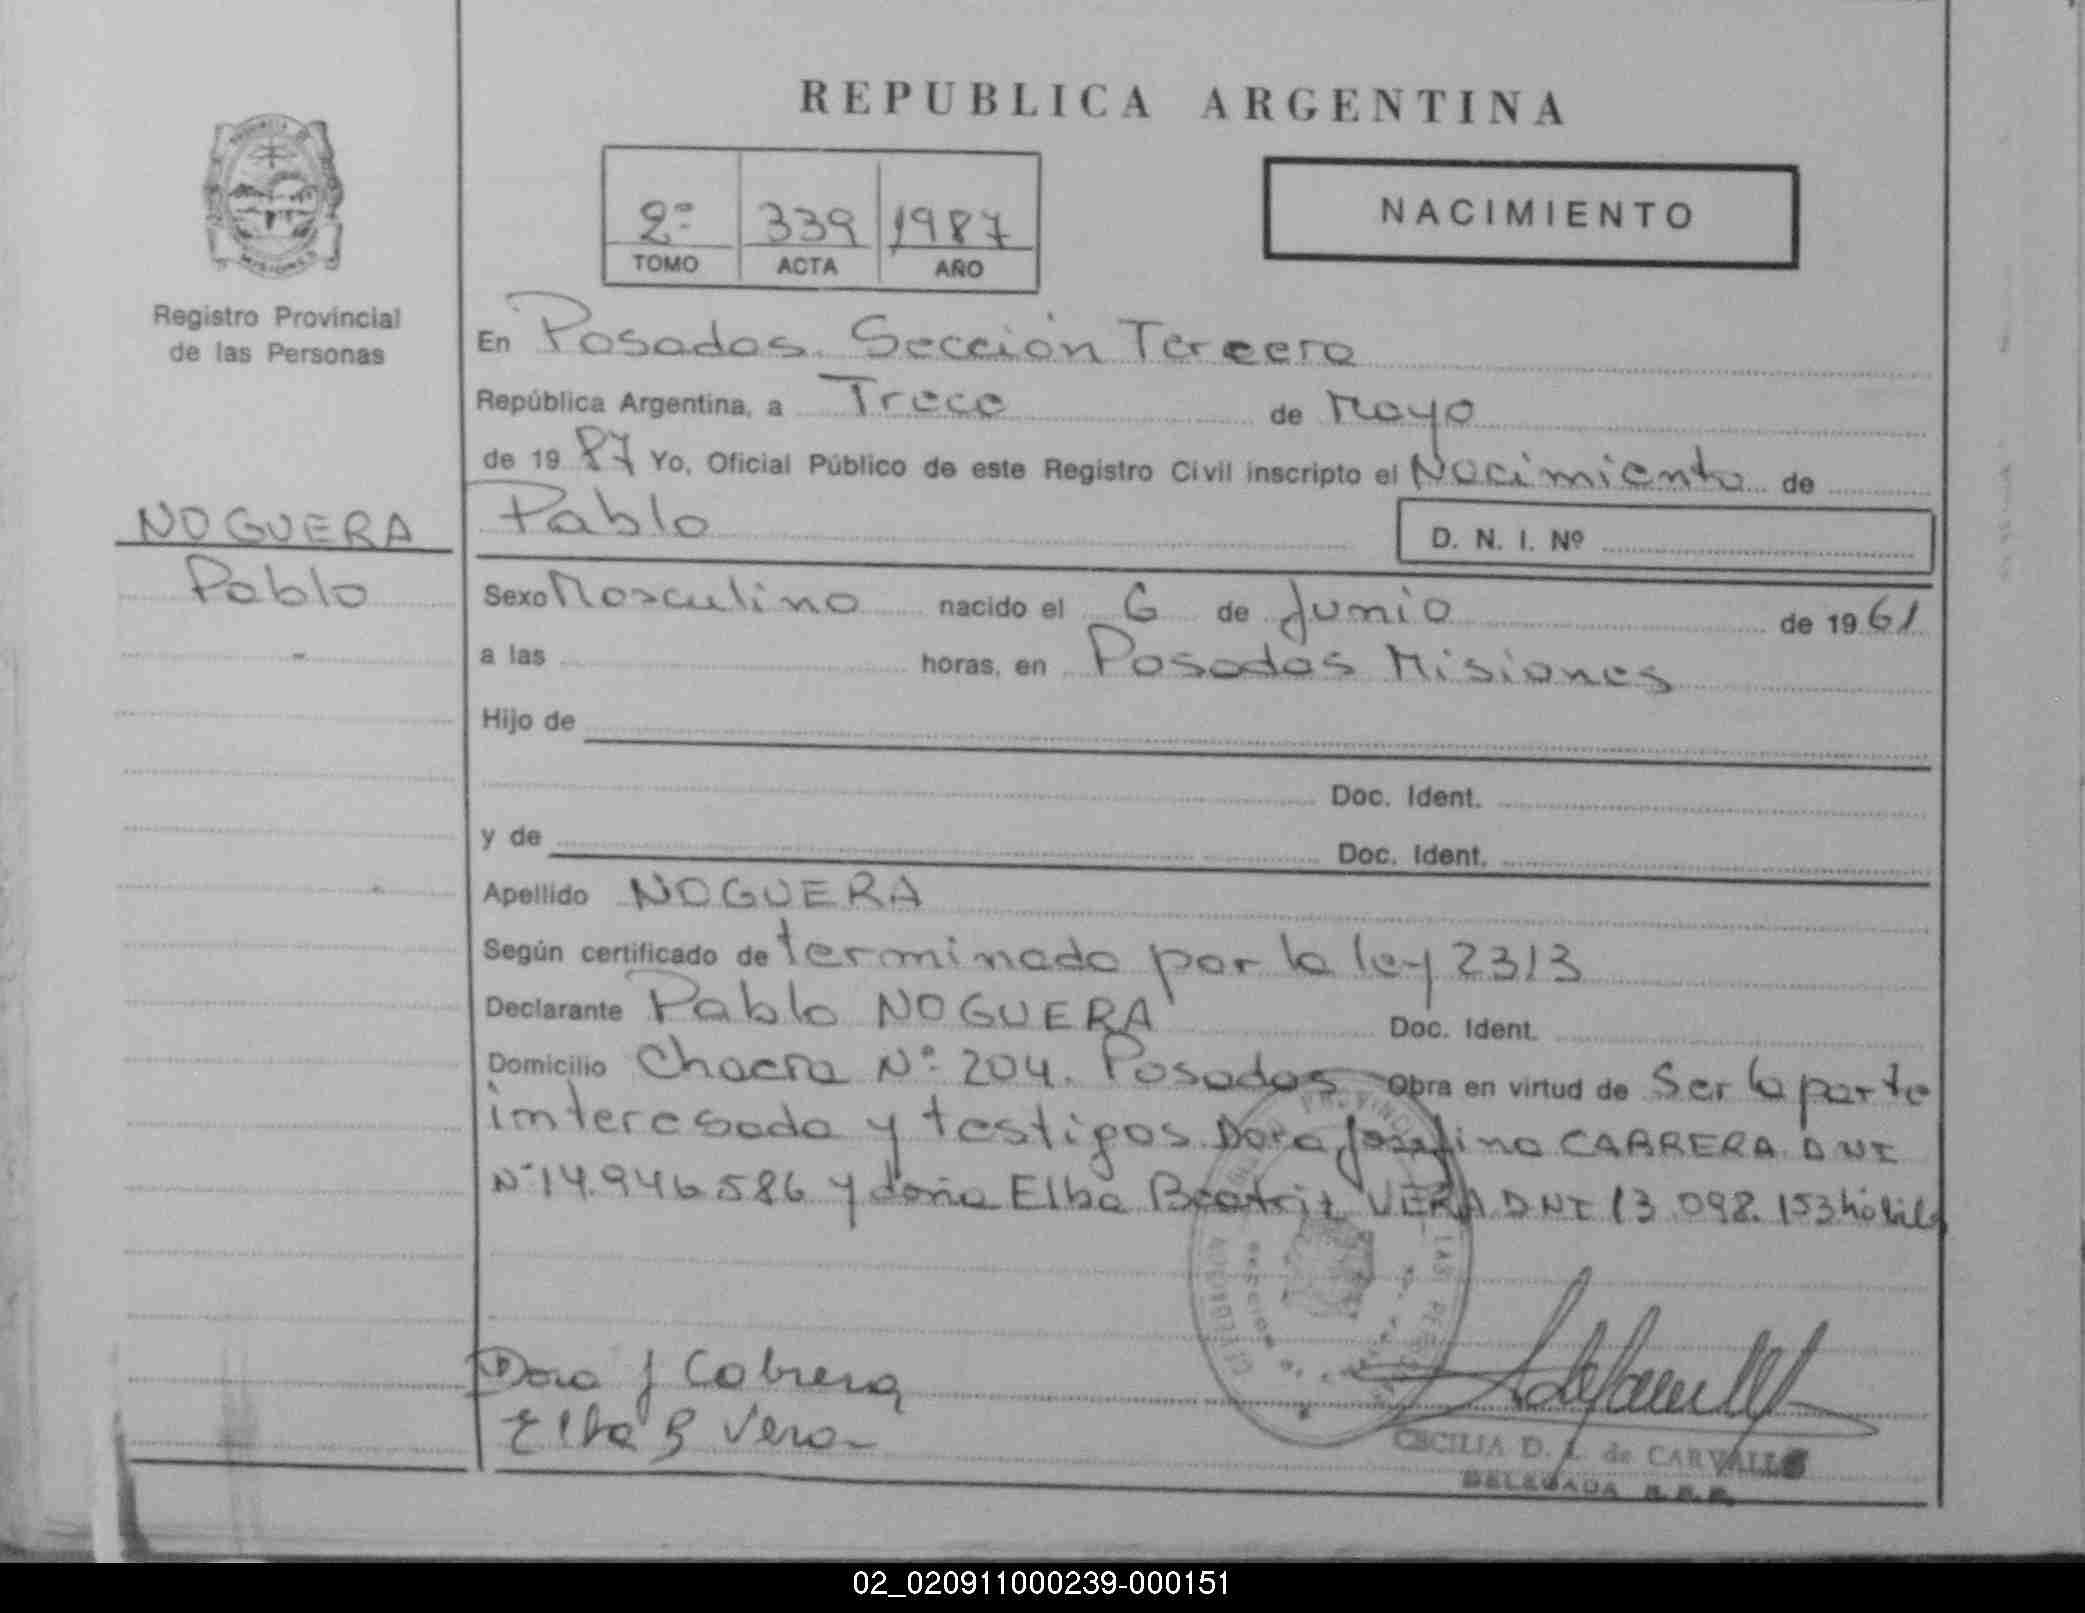 REPUBLICA ARGENTINA
2º 339 1987
TOMO ACTA AÑO
NACIMIENTO
MISIONES
Registro Provincial
de las Personas
En Posadas. Sección Tercera
República Argentina, a Trece de Mayo
de 19 87 Yo, Oficial Público de este Registro Civil inscripto el Nacimiento de
NOGUERA
Pablo
Pablo
D. N. I. Nº
Sexo Masculino nacido el 6 de Junio de 19 61
a las horas, en Posadas Misiones
Hijo de
Doc. Ident.
y de Doc. Ident.
Apellido NOGUERA
Según certificado de terminado por la ley 2313
Declarante Pablo NOGUERA Doc. Ident.
Domicilio Chacra Nº 204. Posadas Obra en virtud de Ser la parte
interesada y testigos Dora Josefina CABRERA DNI
Nº 14.946586 y doña Elba Beatriz VERA DNI 13.098.153 hábiles
Dora J Cabrera
Elba B Vera
CECILIA D. L. de CARVALLO
DELEGADA
02_020911000239-000151